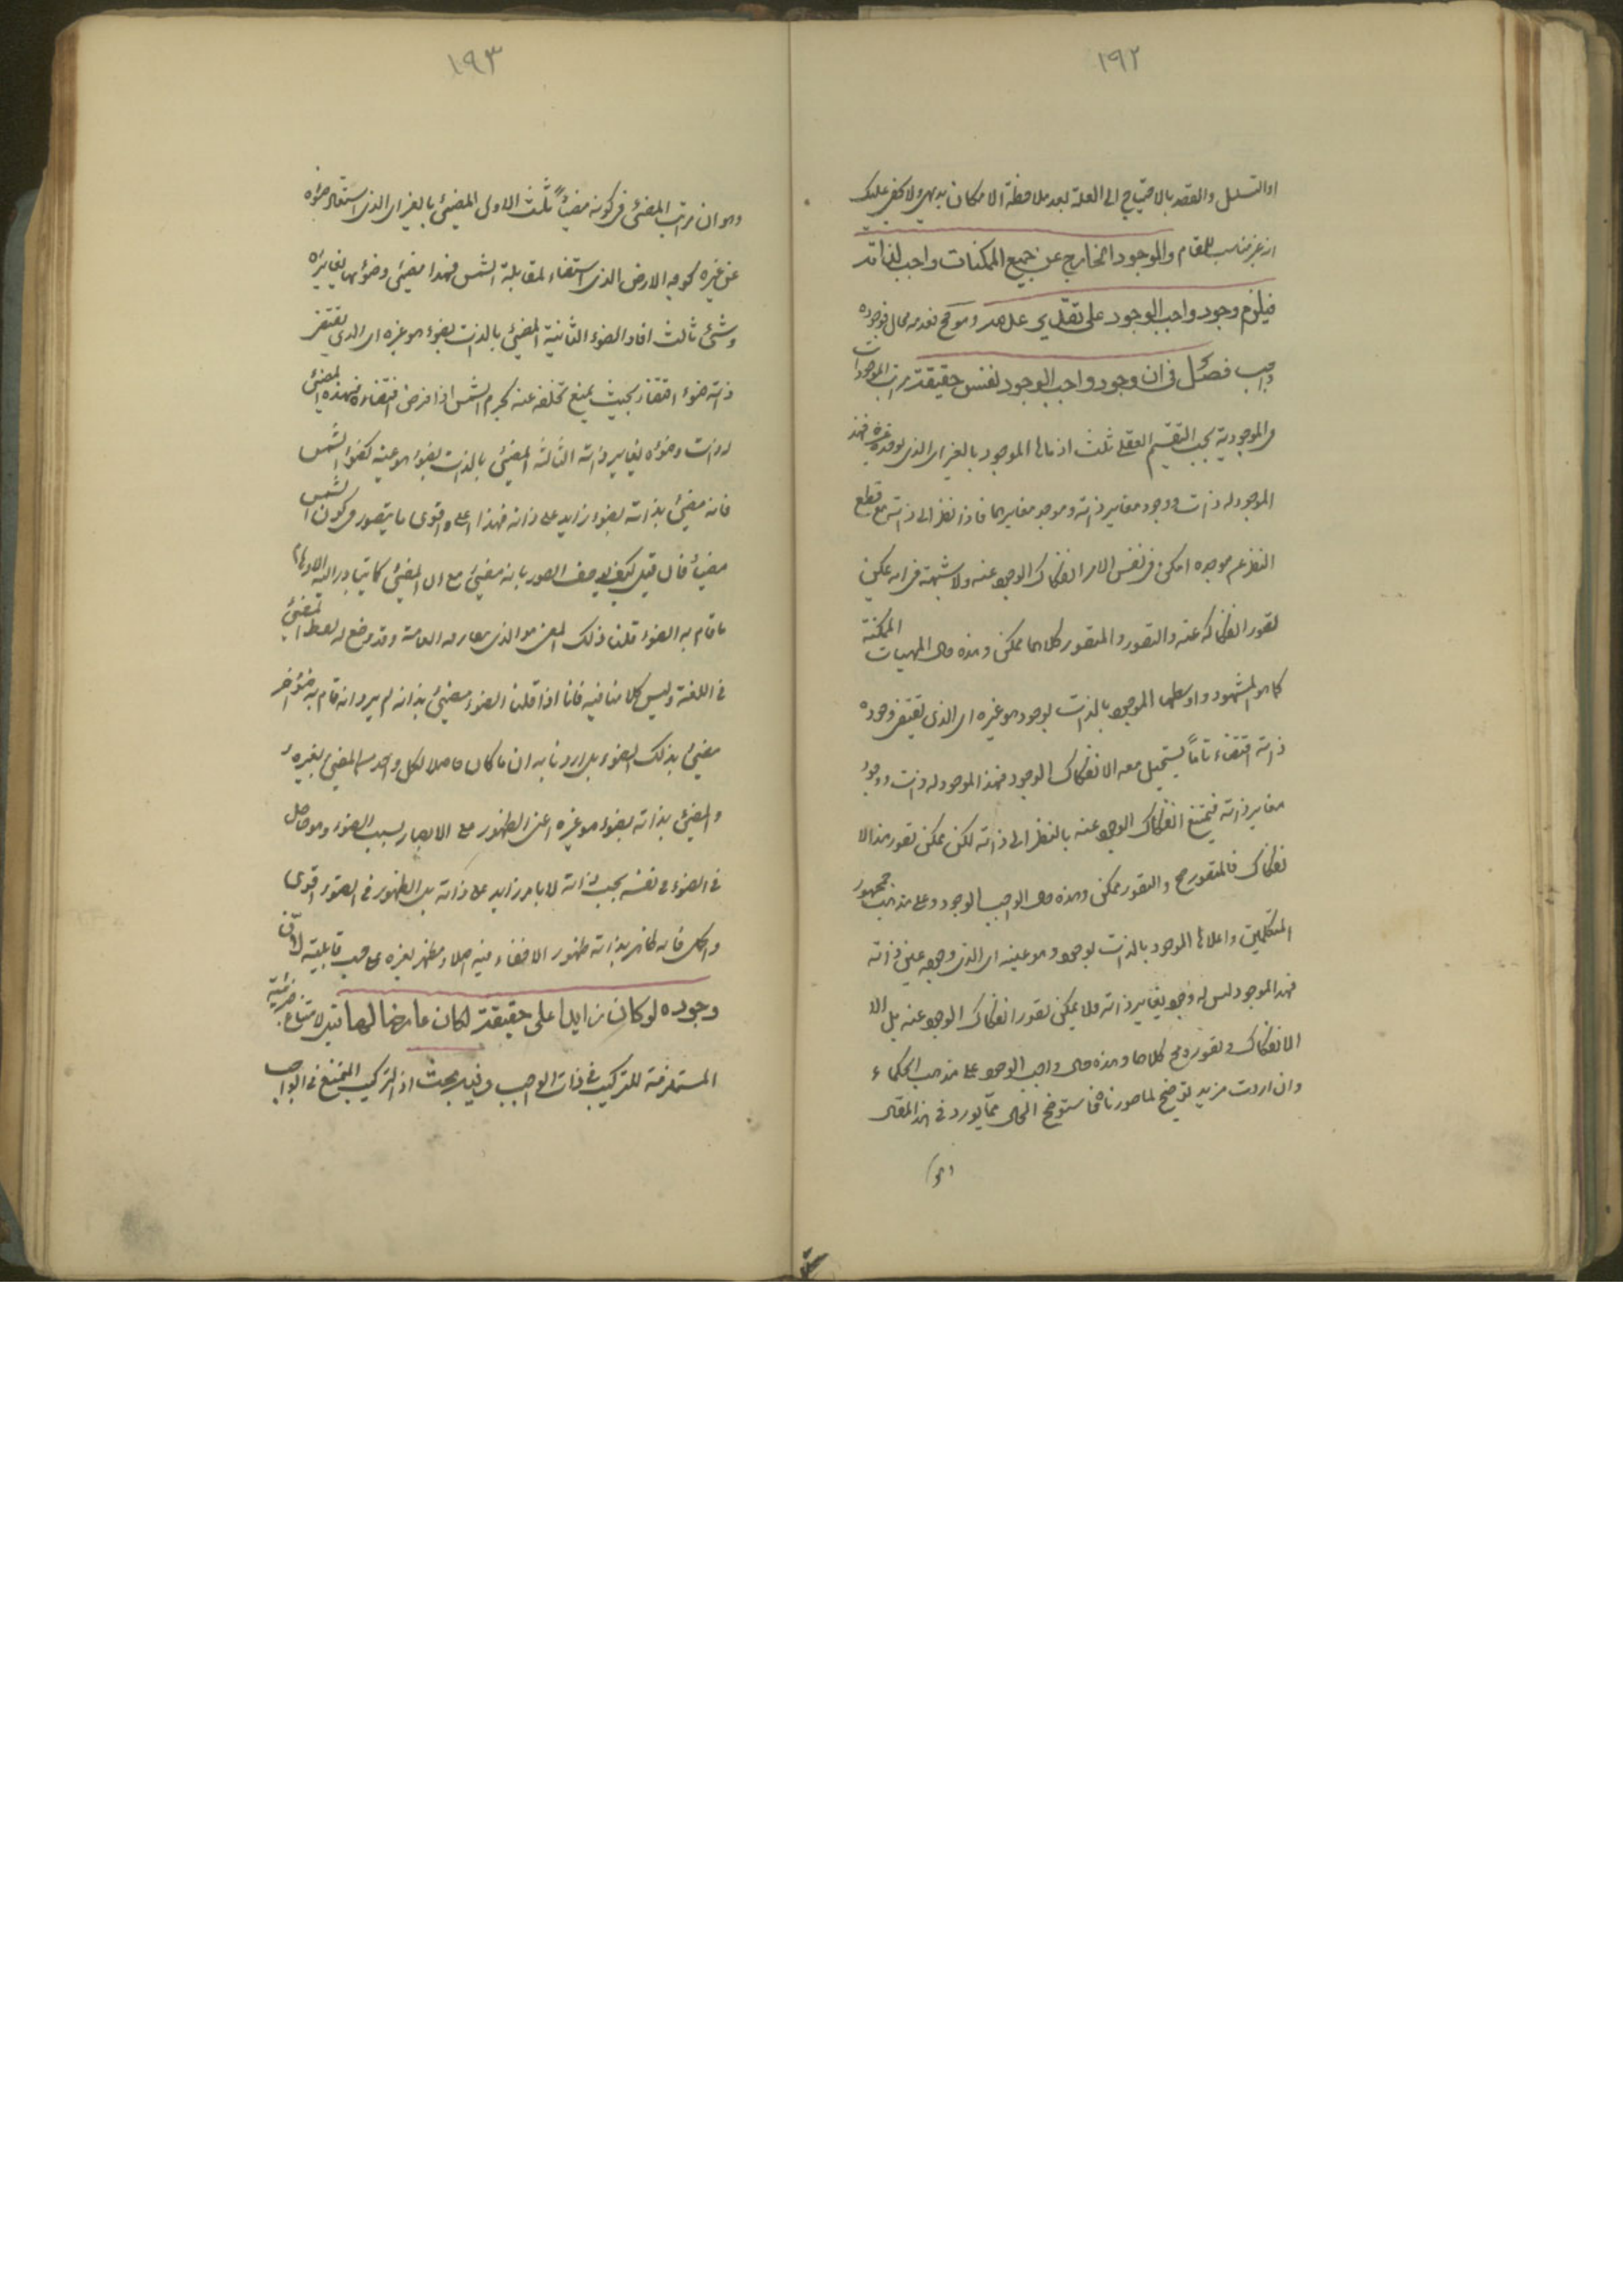 ١٩٢
او التسلسل والقصد بالاحتياج الى العلة بعد ملاحظة الامكان بديهى ولا يخفى عليك
انه غير مناسب للمقام والموجود الخارج عن جميع الممكنات واجب لذاته
فيلزم وجود واجب الوجود على تقدير عدمه وهو مح فعدمه محال فوجوده
واجب فصل فى ان وجود واجب الوجود نفس حقيقته مراتب الموجودات
فى الموجودية بحسب التقسيم العقلى ثلث ادناها الموجود بالغير اى الذى يوجده غيره فهذا
الموجود له ذات ووجود مغاير ذاته وموجد مغايرهما فاذا نظر الى ذاته مع قطع
النظر عن موجده امكن فى نفس الامر انفكاك الوجود عنه ولا شبهة فى انه يمكن
تصور انفكاكه عنه والتصور والمتصور كلاهما ممكن وهذه حال المهيات الممكنة
كما هو المشهور واوسطها الموجود بالذات بوجود هو غيره اى الذى يقتضى وجوده
ذاته اقتضاء تاماً يستحيل معه الانفكاك الوجود فهذا الموجود له ذات ووجود
مغاير ذاته فيمتنع انفكاك الوجود عنه بالنظر الى ذاته لكن يمكن تصور هذا الا
نفكاك فالمتصور مح والتصور ممكن وهذه حال الواجب الوجود وعلى مذهب جمهور
المتكلمين واعلاها الموجود بالذات بوجود هو عينه اى الذى وجوده عين ذاته
فهذا الموجود ليس له وجود يغاير ذاته فلا يمكن تصور انفكاك الوجود عنه بل الا
الانفكاك وتصوره مح كلاهما وهذه حال واجب الوجود على مذهب الحكماء
وان اردت مزيد توضيح لما صورناه فاستوضح الحال مما يورد فى هذا المقال
وهو
١٩٣
وهو ان مراتب المضئ فى كونه مضيئاً ثلث الاولى المضئ بالغير اى الذى استفاد ضوؤه
عن غيره كوجه الارض الذى استضاء لمقابلة الشمس فهذا مضئ وضوؤها يغايره
وشئ ثالث افاد الضوء الثانية المضئ بالذات بضوء هو غيره اى الذى يقتضى
ذاته ضوءا اقتضاء بحيث يمتنع تخلفه عنه كجرم الشمس اذا فرض اقتضاؤه فهذه المضئ
له ذات وضوؤه يغاير ذاته الثالثة المضئ بالذات بضوء هو عينه كضوء الشمس
فانه مضئ بذاته لا بضوء زايد على ذاته فهذا اعلى واقوى ما يتصور فى كون الشمس
مضيئاً فان قيل كيف يوصف الضوء بانه مضئ مع ان المضئ كما يتبادر اليه الاوهام
ما قام به الضوء قلنا ذلك المعنى هو الذى يتعارفه العامة وقد وضع له لفظ المضئ
فى اللغة وليس كلامنا فيه فانا اذا قلنا الضوء مضئ بذاته لم يرد انه قام به ضوء آخر
مضئ بذلك الضوء بل اردنا به ان ما كان حاصلا لكل واحد من المضئ بغيره
والمضئ بذاته بضوء هو غيره اعنى الظهور على الابصار بسبب الضوء وهو حاصل
فى الضوء فى نفسه بحسب ذاته لا بامر زايد على ذاته بل الظهور فى الضوء اقوى
واكمل فانه ظاهر بذاته ظهور الاخفاء فيه اصلا ومظهر لغيره على حسب قابليته لان
وجوده لو كان زايدا على حقيقته لكان عارضا لها قيل لامتناع جزئيته
المستلزمة للتركيب فى ذات الواجب وفيه بحث اذ التركيب الممتنع فى الواجب